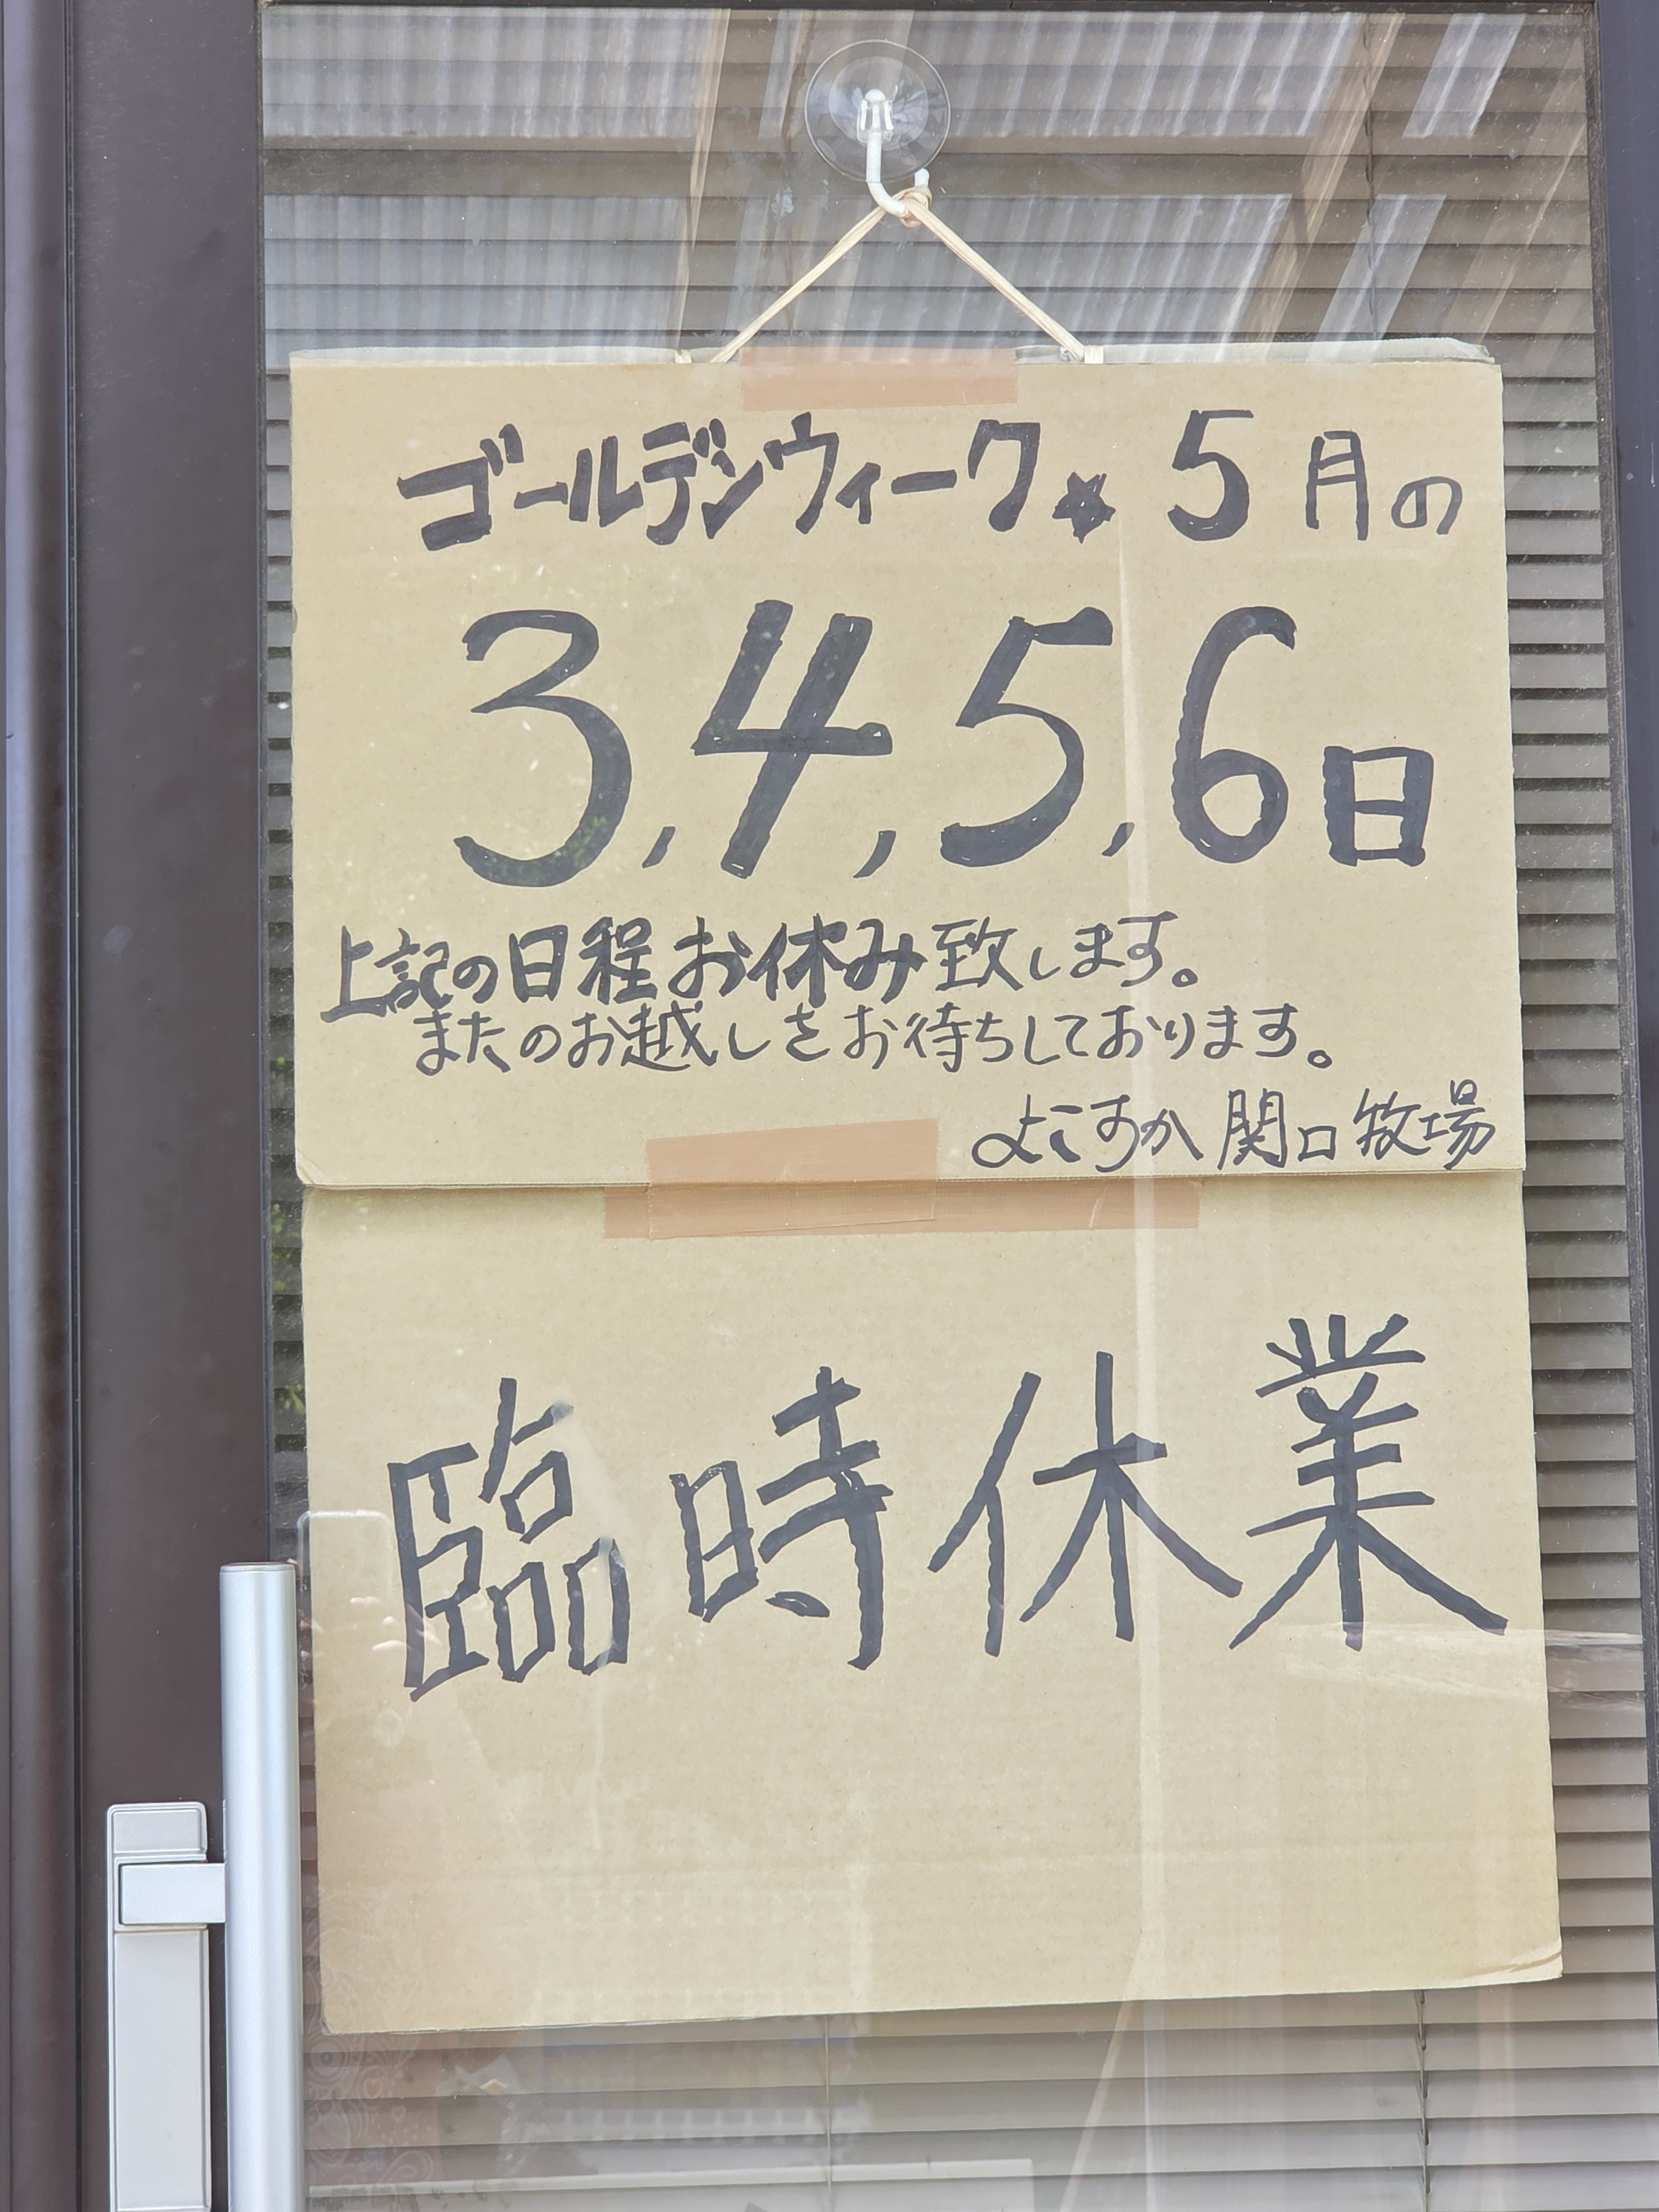 ゴールデンウィーク★5月の
3,4,5,6日
上記の日程お休み致します。
またのお越しをお待ちしております。
よこすか関口牧場
臨時休業